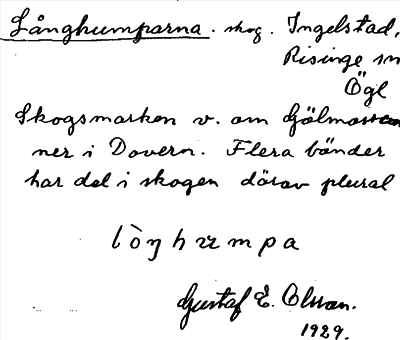 Långhumparna. skog. Ingelstad,
Risinge sn
Ögl
Skogsmarken v. om Gölmossen
ner i Dovern. Flera bönder
har del i skogen därav plural
lòŋhumpa
Gustaf E. Olsson.
1929.